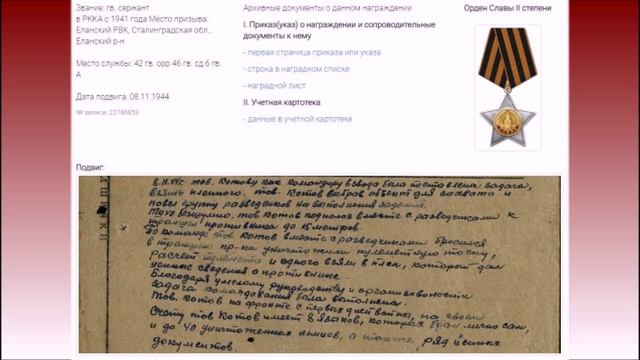 Звание: гв. сержант
в РККА с 1941 года Место призыва:
Еланский РВК, Сталинградская обл.,
Еланский р-н
Место службы: 42 гв. орр 46 гв. сд 6 гв.
А
Дата подвига: 08.11.1944
№ записи: 22786853
Архивные документы о данном награждении
I. Приказ(указ) о награждении и сопроводительные
документы к нему
- первая страница приказа или указа
- строка в наградном списке
- наградной лист
II. Учетная картотека
- данные в учетной картотеке
Орден Славы II степени
Подвиг:
8.11.44г. тов. Котову как командиру взвода была поставлена задача,
взять пленного. тов. Котов выбрав объект для захвата и
повел группу разведчиков на выполнение задания.
тов Котов подполз вместе с разведчиками к
траншеи противника до 15 метров.
По команде тов Котов вместе с разведчиками бросился
в траншею пр-ка уничтожили пулеметную точку,
расчет пулемета и одного взяли в плен, который дал
ценные сведения о противнике.
Благодаря умелому руководству и организованности
задача командования была выполнена.
Тов. Котов на фронте с первых дней войны, на своем
счету тов Котов имеет 8 языков, которых брал лично сам,
и до 40 уничтоженных немцев, а также ряд ценных
документов.